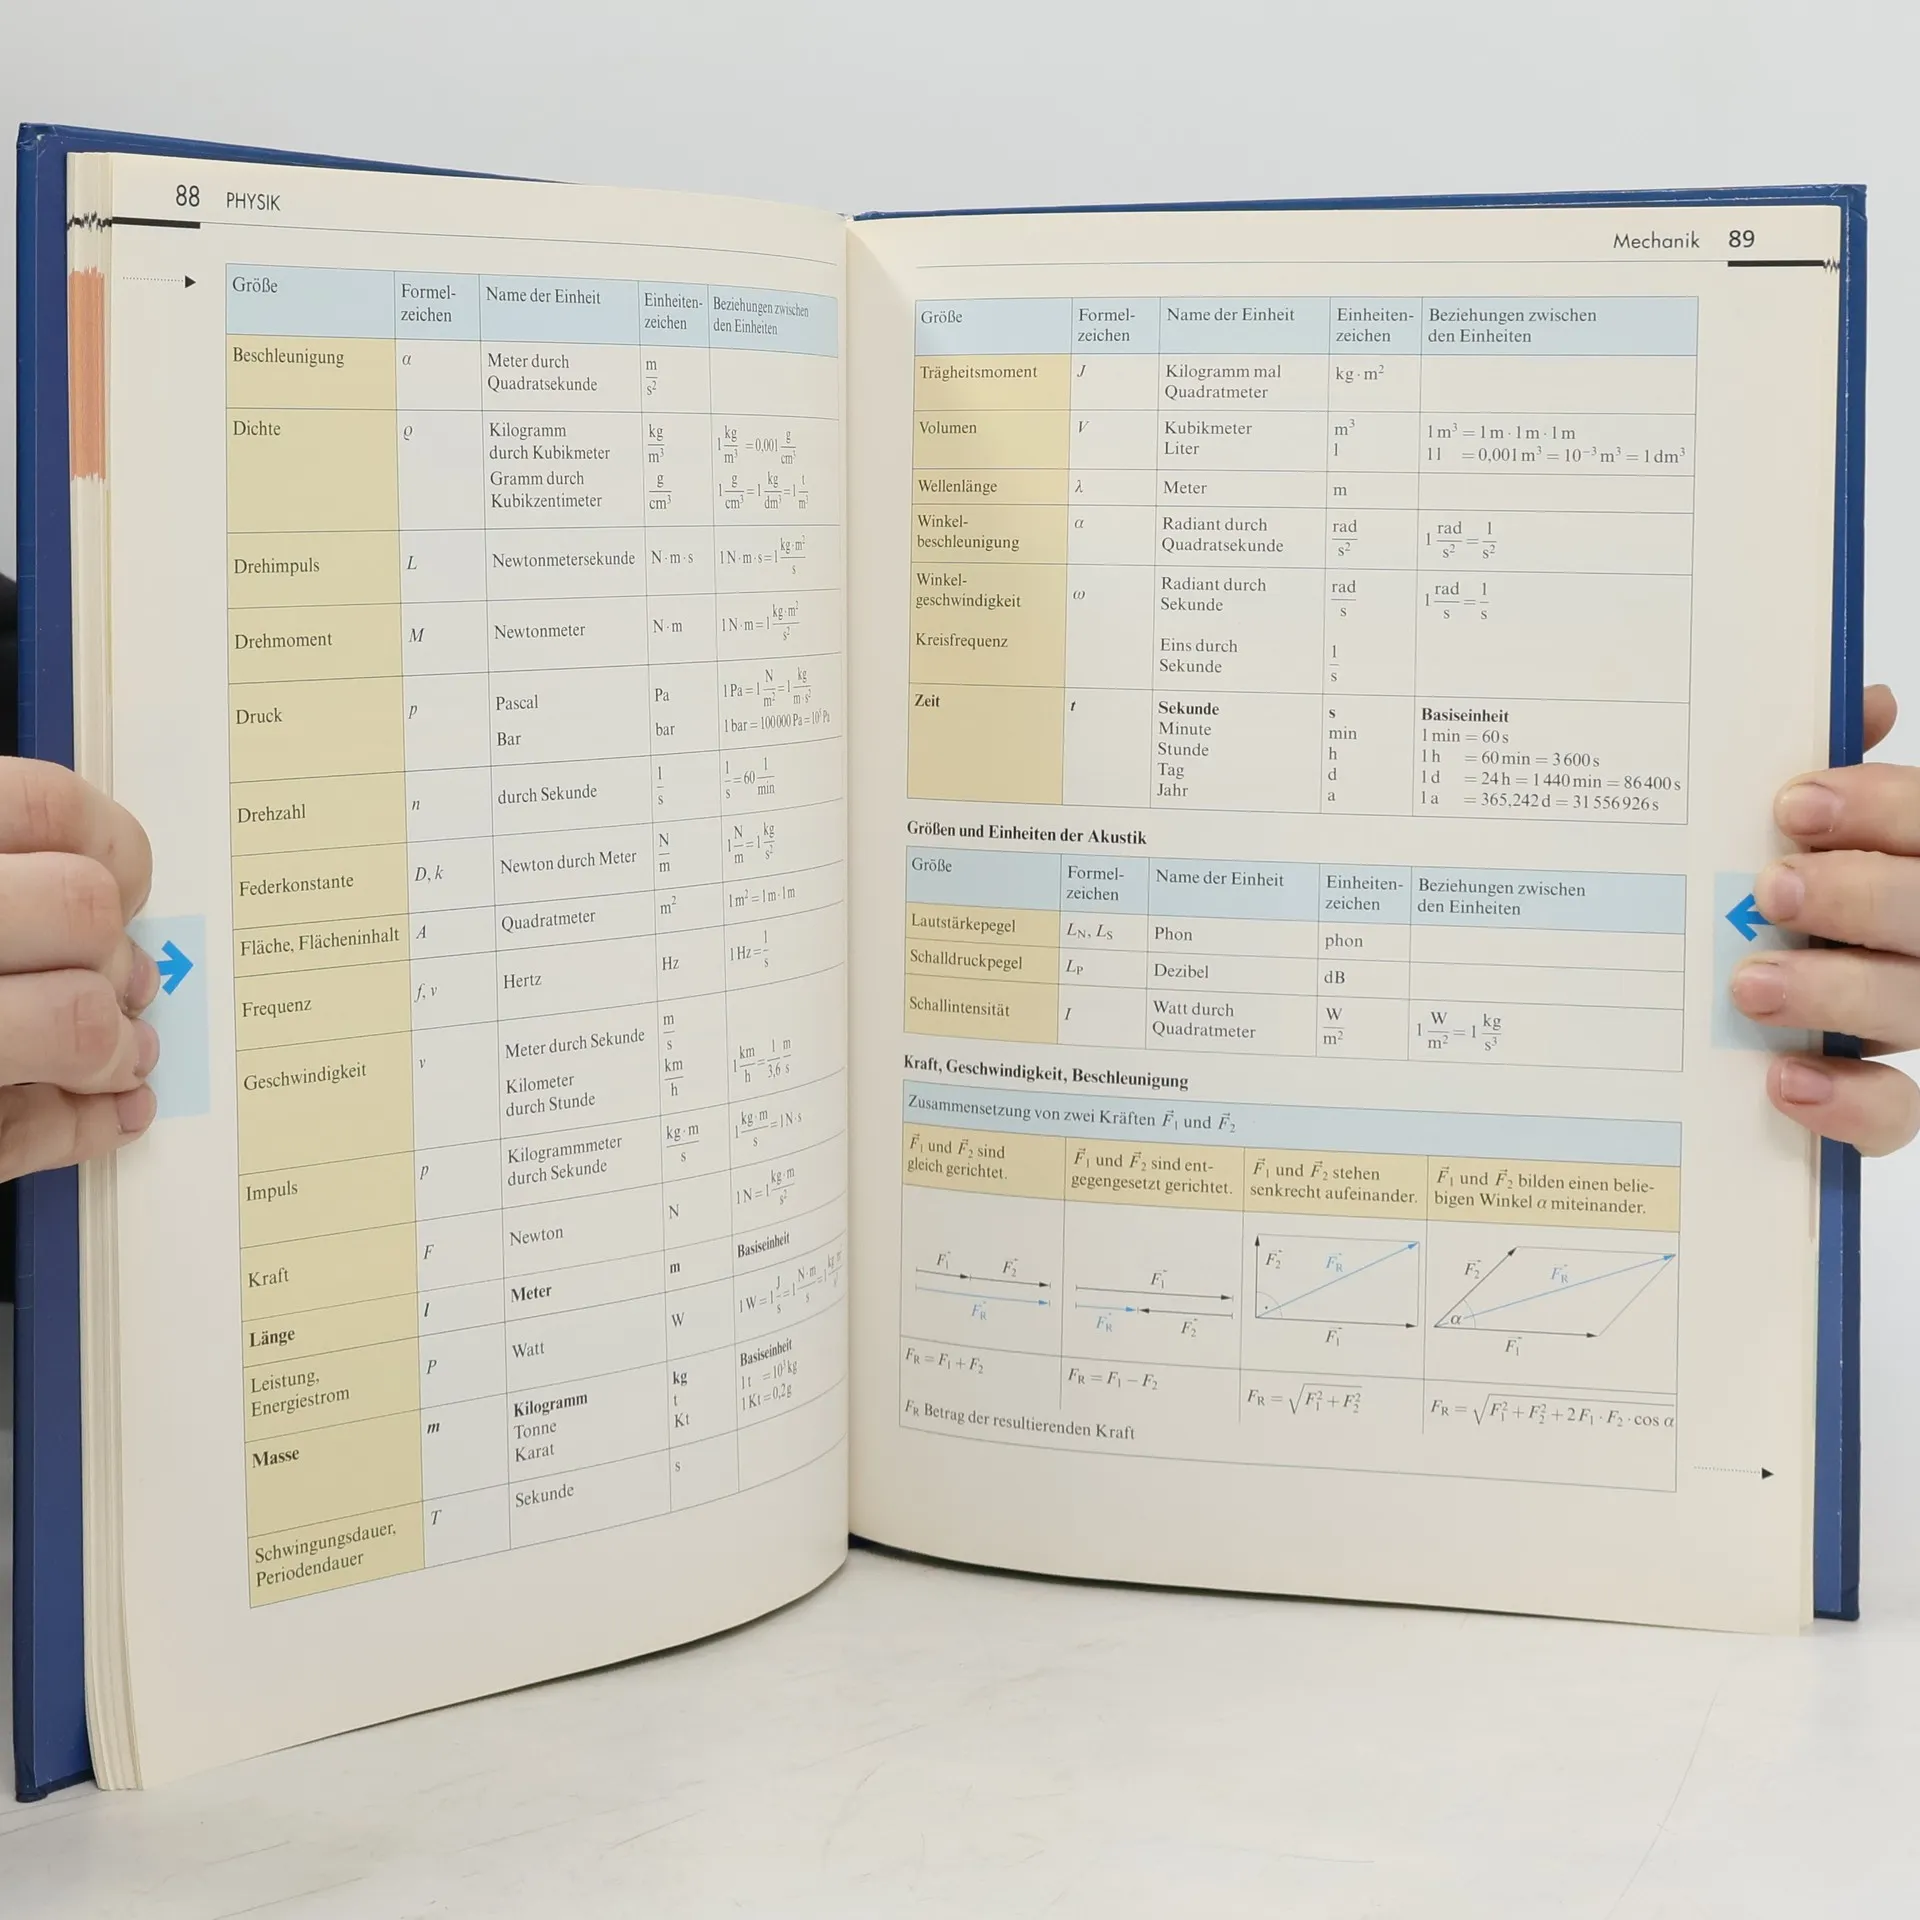 88 PHYSIK
Größe | Formel-zeichen | Name der Einheit | Einheiten-zeichen | Beziehungen zwischen den Einheiten
Beschleunigung | α | Meter durch Quadratsekunde | m/s²
Dichte | ϱ | Kilogramm durch Kubikmeter | kg/m³ | 1 kg/m³ = 0,001 g/cm³
Gramm durch Kubikzentimeter | g/cm³ | 1 g/cm³ = 1 kg/dm³ = 1 t/m³
Drehimpuls | L | Newtonmetersekunde | N·m·s | 1 N·m·s = 1 kg·m²/s
Drehmoment | M | Newtonmeter | N·m | 1 N·m = 1 kg·m²/s²
Druck | p | Pascal | Pa | 1 Pa = 1 N/m² = 1 kg/m·s²
Bar | bar | 1 bar = 100000 Pa = 10⁵ Pa
Drehzahl | n | durch Sekunde | 1/s | 1/s = 60 1/min
Federkonstante | D, k | Newton durch Meter | N/m | 1 N/m = 1 kg/s²
Fläche, Flächeninhalt | A | Quadratmeter | m² | 1 m² = 1 m·1 m
Frequenz | f, ν | Hertz | Hz | 1 Hz = 1/s
Geschwindigkeit | v | Meter durch Sekunde | m/s
Kilometer durch Stunde | km/h | 1 km/h = 1/3,6 m/s
Impuls | p | Kilogrammmeter durch Sekunde | kg·m/s | 1 kg·m/s = 1 N·s
Kraft | F | Newton | N | 1 N = 1 kg·m/s²
Länge | l | Meter | m | Basiseinheit
Leistung, Energiestrom | P | Watt | W | 1 W = 1 J/s = 1 N·m/s = 1
Masse | m | Kilogramm | kg | Basiseinheit
Tonne | t | 1 t = 10³ kg
Karat | Kt | 1 Kt = 0,2 g
Schwingungsdauer, Periodendauer | T | Sekunde | s
Mechanik 89
Größe | Formel-zeichen | Name der Einheit | Einheiten-zeichen | Beziehungen zwischen den Einheiten
Trägheitsmoment | J | Kilogramm mal Quadratmeter | kg·m²
Volumen | V | Kubikmeter | m³ | 1 m³ = 1 m · 1 m · 1 m
Liter | l | 1 l = 0,001 m³ = 10⁻³ m³ = 1 dm³
Wellenlänge | λ | Meter | m
Winkel-beschleunigung | α | Radiant durch Quadratsekunde | rad/s² | 1 rad/s² = 1/s²
Winkel-geschwindigkeit | ω | Radiant durch Sekunde | rad/s | 1 rad/s = 1/s
Kreisfrequenz | Eins durch Sekunde | 1/s
Zeit | t | Sekunde | s | Basiseinheit
Minute | min | 1 min = 60 s
Stunde | h | 1 h = 60 min = 3600 s
Tag | d | 1 d = 24 h = 1440 min = 86400 s
Jahr | a | 1 a = 365,242 d = 31 556 926 s
Größen und Einheiten der Akustik
Größe | Formel-zeichen | Name der Einheit | Einheiten-zeichen | Beziehungen zwischen den Einheiten
Lautstärkepegel | L_N, L_S | Phon | phon
Schalldruckpegel | L_P | Dezibel | dB
Schallintensität | I | Watt durch Quadratmeter | W/m² | 1 W/m² = 1 kg/s³
Kraft, Geschwindigkeit, Beschleunigung
Zusammensetzung von zwei Kräften F⃗₁ und F⃗₂
F⃗₁ und F⃗₂ sind gleich gerichtet. | F⃗₁ und F⃗₂ sind ent-gegengesetzt gerichtet. | F⃗₁ und F⃗₂ stehen senkrecht aufeinander. | F⃗₁ und F⃗₂ bilden einen belie-bigen Winkel α miteinander.
F⃗₁ F⃗₂ F⃗_R | F⃗₁ F⃗_R F⃗₂ | F⃗₂ F⃗_R F⃗₁ | F⃗₂ F⃗_R α F⃗₁
F_R = F₁ + F₂ | F_R = F₁ − F₂ | F_R = √(F₁² + F₂²) | F_R = √(F₁² + F₂² + 2 F₁ · F₂ · cos α)
F_R Betrag der resultierenden Kraft